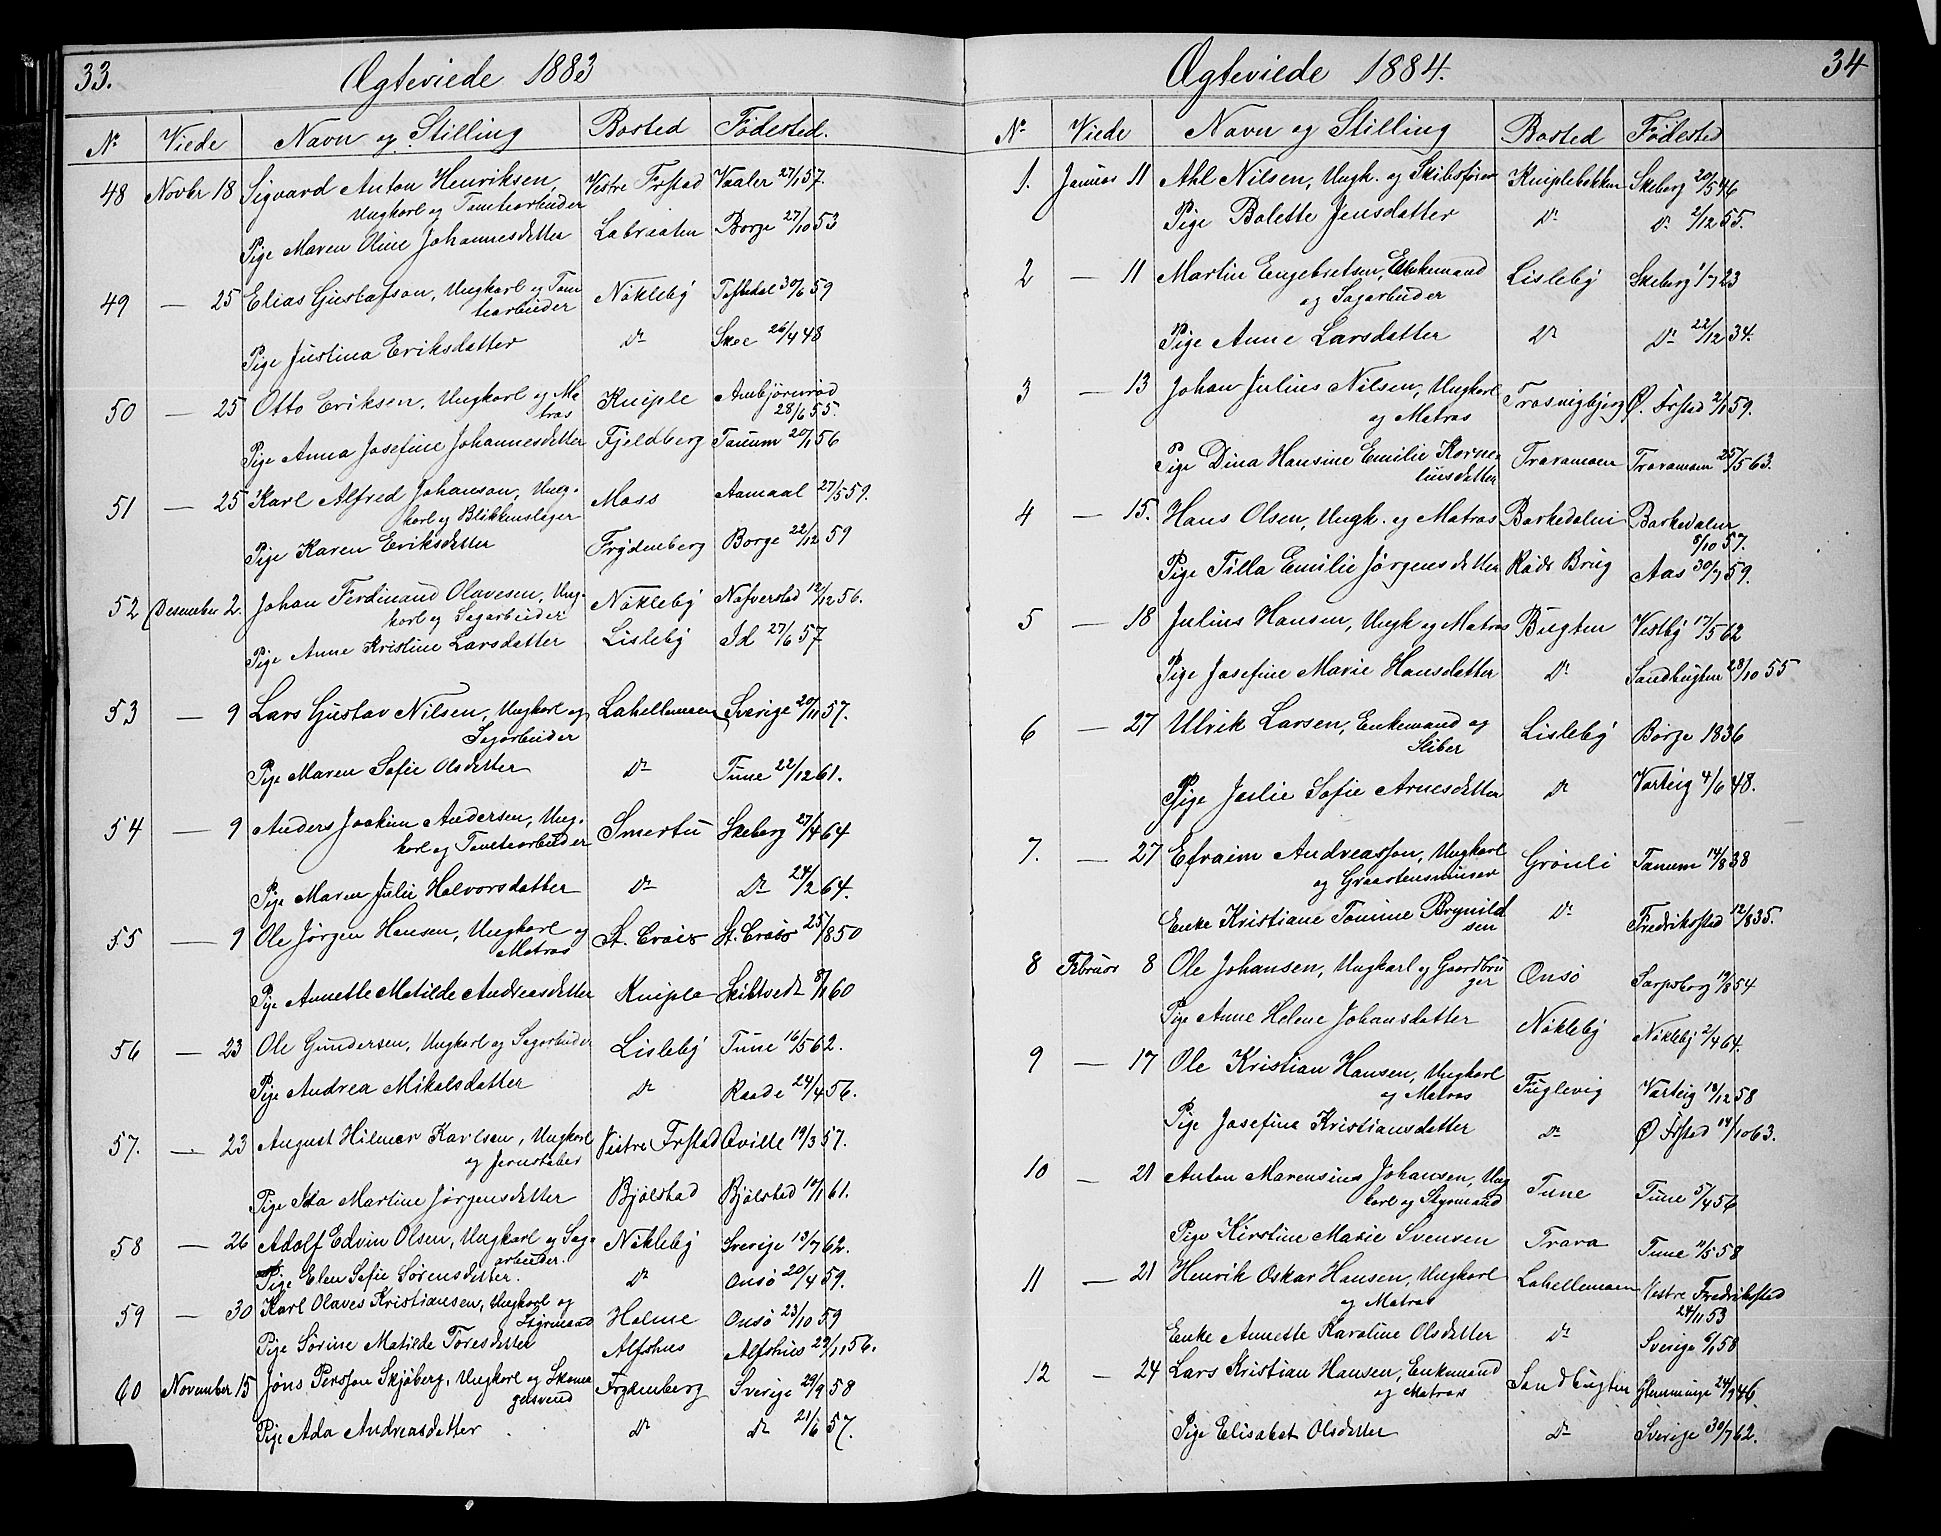 33.
Ægteviede 1883
No Viede Navn og Stilling Bosted Fødested.
48 Novbr 18 Sigvard Anton Henriksen, Vestre Frstad Vaaler 27/1 57.
Ungkarl og Tomtearbeider
Pige Maren Oline Johannesdatter Labraaten Borge 27/10 53
49 — 25 Elias Gustafson, Ungkarl og Tom Nökleby Töftedal 30/6 59
tearbeider
Pige Justina Eriksdatter Do Skee 26/4 48
50 — 25 Otto Eriksen, Ungkarl og Ma Kniple Ambjörnröd
tros 28/6 55
Pige Anna Josefine Johannesdatter Fjeldberg Tanum 20/1 56
51 — 25 Karl Alfred Johanson, Ung- Moss Aamaal 27/5 59.
karl og Blikkenslager
Pige Karen Eriksdatter Frydenberg Borge 22/12 59
52 Desember 2. Johan Ferdinand Olavesen, Ung- Nökleby Nafverstad 12/12 56.
karl og Sagarbeider
Pige Anne Kristine Larsdatter Lisleby Id 27/6 57
53 — 9 Lars Gustav Nilsen, Ungkarl og Lahellemoen Sverige 20/11 57.
Sagarbeider
Pige Maren Sofie Olsdatter Do Tune 22/12 61.
54 — 9 Anders Joakim Andersen, Ung- Smertu Skeberg 27/4 64
karl og Tomtearbeider
Pige Maren Julie Halvorsdatter Do Do 24/2 64.
55 — 9 Ole Jørgen Hansen, Ungkarl og St. Croix St. Croix 25/8 50
Matros
Pige Annette Matilde Andreasdatter Kniple Skibtvedt 8/1 60
56 — 23 Ole Gundersen, Ungkarl og Sagarbeider Lisleby Tune 16/5 62.
Pige Andrea Mikalsdatter Do Raade 24/4 56.
57. — 23 August Hilmer Karlsen, Ungkarl Vestre Frstad Qville 19/3 57.
og Jernstøber
Pige Ida Martine Jørgensdatter Bjölstad Bjölstad 10/1 61.
58 — 26 Adolf Edvin Olsen, Ungkarl og Sag- Nökleby Sverige 13/7 62.
arbeider.
Pige Elen Sofie Sørensdatter. Do Onsö 20/4 59.
59 — 30 Karl Olaves Kristiansen, Ungkarl og Holme Onsö 23/10 59
Styrmand
Pige Sörine Matilde Toresdatter Alfshus Alfshus 29/11 56.
60 November 15 Jöns Persson Skjöberg, Ungkarl og Skoma Frydenberg Sverige 29/9 58
gersvend
Pige Ada Andreasdatter Do Do 21/6 57.
Ægteviede 1884.
34
No Viede Navn og Stilling Bosted Fødested
1. Januar 11 Ahl Nilsen, Ungk. og Skibsfører Kniplebakken Skeberg 20/5 46
Pige Bolette Jensdatter Do Do 2/12 55.
2 — 11 Martin Engebretsen, Enkemand Lisleby Skeberg 1/7 23
og Sagarbeider
Pige Anne Larsdatter Do Do 22/12 34.
3 — 13 Johan Julius Nilsen, Ungkarl Trosvigbjerg Ø. Frstad 2/1 59.
og Matros
Pige Dina Hansine Emilie Korne- Traramoen Traramoen 25/5 63.
liusdatter
4 — 15. Hans Olsen, Ungk. og Matros Barkedalen Barkedalen
8/10 57.
Pige Tilla Emilie Jørgensdatter Röds Brug Aas 30/7 59.
5 — 18 Julius Hansen, Ungk og Matros Bugten Vestby 17/5 62
Pige Josefine Marie Hansdatter Do Sandbugten 28/10 55
6 — 27 Ulrik Larsen, Enkemand og Lisleby Borge 1836
Sliber
Pige Julie Sofie Arnesdatter Do Varteig 4/6 48.
7. — 27 Efraim Andreasson, Ungkarl Grönli Tanum 14/8 38
og Graastensmurer
Enke Kristiane Tomine Brynild Do Fredriksstad 12/8 35.
sen
8 Februar 8 Ole Johansen, Ungkarl og Gaardbru Onsö Sarpsborg 19/8 54
ger
Pige Anne Helene Johansdatter Nökleby Nökleby 2/4 64.
9 — 17 Ole Kristian Hansen, Ungkarl Fuglevig Varteig 18/12 58
og Matros
Pige Josefine Kristiansdatter Do Ø Frstad 14/10 63.
10 — 21 Anton Marensius Johansen, Ung Tune Tune 5/4 56
karl og Styrmand
Pige Kirstine Marie Svensen Trara Tune 11/5 58
11 — 21 Henrik Oskar Hansen, Ungkarl Lahellemoen Vestre Fredriksstad
og Matros 24/11 53
Enke Annette Karoline Olsdatter Do Sverige 6/1 58
12 — 24 Lars Kristian Hansen, Enkemand Sandbugten 24/9 46.
og Matros
Pige Elisabet Olsdatter Do Sverige 30/7 62.